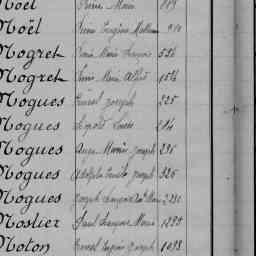 Noël Pierre Marie 119
Noël Pierre Eugène Mathurin 910
Nogret Pierre Marie François 524
Nogret Pierre Marie Alfred 1524
Nogues Ernest Joseph 225
Nogues Arnold Louis 214
Nogues Ange Marie Joseph 236
Nogues Adolphe Louis Joseph 326
Nogues Joseph François Marie 2230
Noslier Paul François Marie 1290
Noton Ernest Eugène Joseph 1093